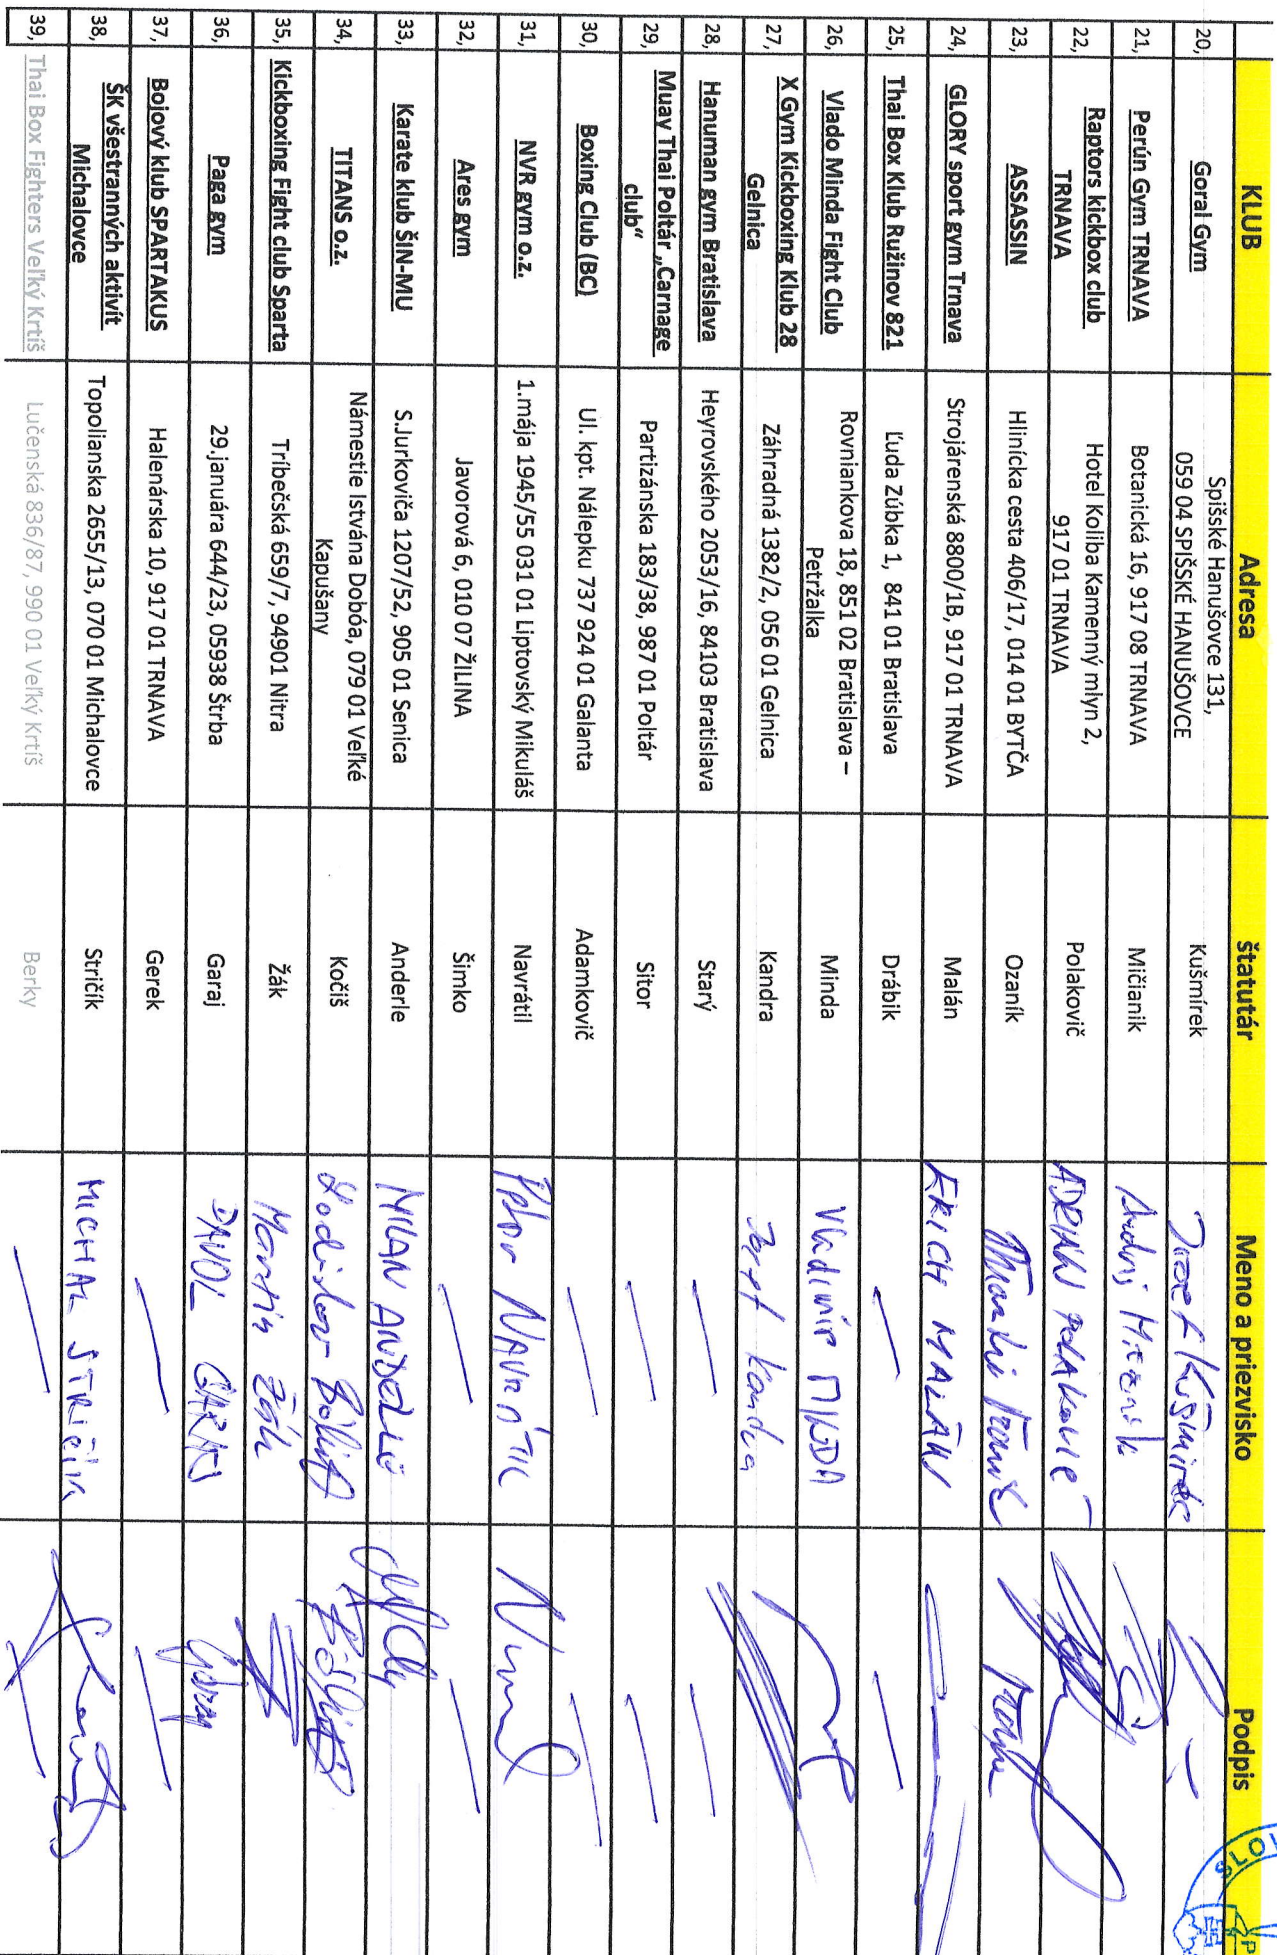 KLUB Adresa štatutár Meno a priezvisko Podpis
20, Goral Gym Spišské Hanušovce 131,
059 04 SPIŠSKÉ HANUŠOVCE Kušmírek Jozef Kušmírek
21, Perún Gym TRNAVA Botanická 16, 917 08 TRNAVA Mičianik Andrej
22, Raptors kickbox club
TRNAVA Hotel Koliba Kamenný mlyn 2,
917 01 TRNAVA Polakovič ADRIAN POLAKOVIČ
23, ASSASSIN Hlinícka cesta 406/17, 014 01 BYTČA Ozaník
24, GLORY sport gym Trnava Strojárenská 8800/1B, 917 01 TRNAVA Malán ERICH MALÁN
25, Thai Box Klub Ružinov 821 Ľuda Zúbka 1, 841 01 Bratislava Drábik
26, Vlado Minda Fight Club Rovniankova 18, 851 02 Bratislava –
Petržalka Minda Vladimír MINDA
27, X Gym Kickboxing Klub 28
Gelnica Záhradná 1382/2, 056 01 Gelnica Kandra Jozef Kandra
28, Hanuman gym Bratislava Heyrovského 2053/16, 84103 Bratislava Starý
29, Muay Thai Poltár „Carnage
club“ Partizánska 183/38, 987 01 Poltár Sitor
30, Boxing Club (BC) Ul. kpt. Nálepku 737 924 01 Galanta Adamkovič
31, NVR gym o.z. 1.mája 1945/55 031 01 Liptovský Mikuláš Navrátil Peter NAVRÁTIL
32, Ares gym Javorová 6, 010 07 ŽILINA Šimko
33, Karate klub ŠIN-MU S.Jurkoviča 1207/52, 905 01 Senica Anderle MILAN ANDERLE
34, TITANS o.z. Námestie Istvána Dobóa, 079 01 Veľké
Kapušany Kočiš Ladislav
35, Kickboxing Fight club Sparta Tríbečská 659/7, 94901 Nitra Žák Martin Žák
36, Paga gym 29.januára 644/23, 05938 Štrba Garaj PAVOL GARAJ
37, Bojový klub SPARTAKUS Halenárska 10, 917 01 TRNAVA Gerek
38, ŠK všestranných aktivít
Michalovce Topolianska 2655/13, 070 01 Michalovce Stričík MICHAL STRIČÍK
39, Thai Box Fighters Veľký Krtíš Lučenská 836/87, 990 01 Veľký Krtíš Berky